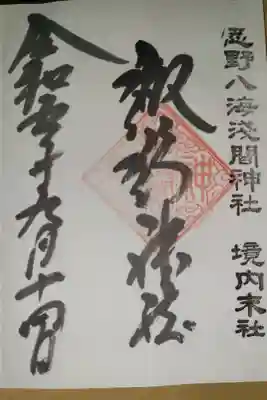 忍野八海淺間神社 境内末社
諏訪神社
令和五年九月十四日